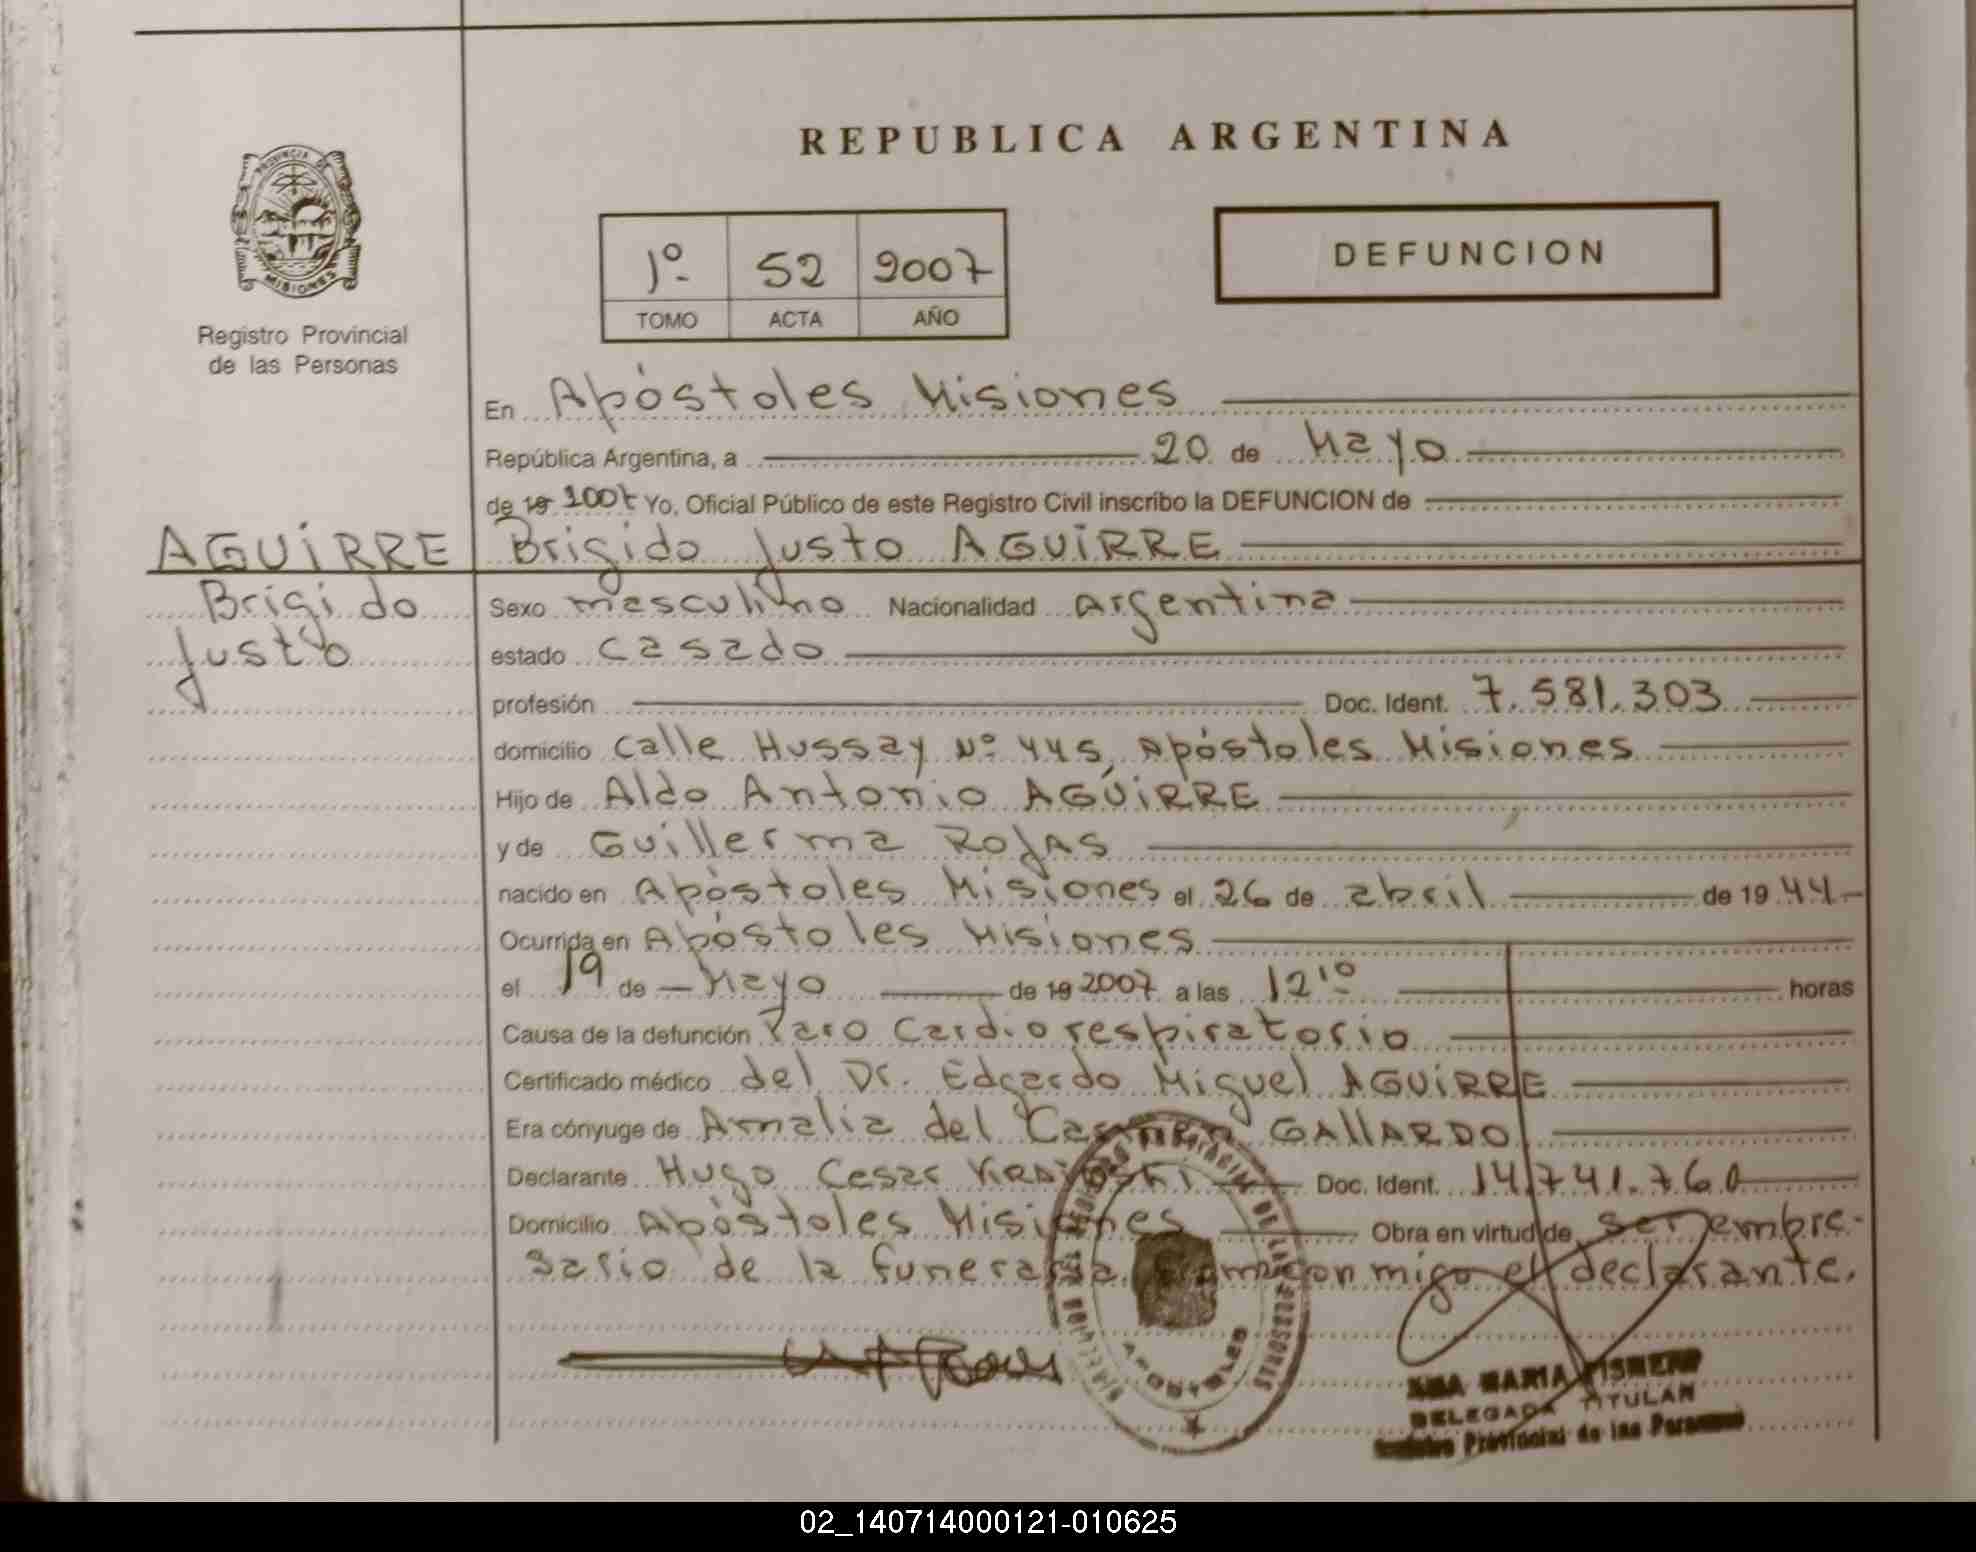 REPUBLICA ARGENTINA
PROVINCIA DE
MISIONES
Registro Provincial
de las Personas
1º 52 2007
TOMO ACTA AÑO
DEFUNCION
En Apóstoles Misiones
República Argentina, a 20 de Mayo
de 19 2007 Yo, Oficial Público de este Registro Civil inscribo la DEFUNCION de
AGUIRRE Brigido Justo AGUIRRE
Brigido
Justo
Sexo masculino Nacionalidad Argentina
estado casado
profesión Doc. Ident. 7.581.303
domicilio calle Hussay Nº 445, Apóstoles Misiones
Hijo de Aldo Antonio AGUIRRE
y de Guillerma Rojas
nacido en Apóstoles Misiones el 26 de abril de 19 44-
Ocurrida en Apóstoles Misiones
el 19 de Mayo de 19 2007 a las 12'º horas
Causa de la defunción Paro Cardiorespiratorio
Certificado médico del Dr. Edgardo Miguel AGUIRRE
Era cónyuge de Amalia del Carmen GALLARDO
Declarante Hugo Cesar Doc. Ident. 14.741.760
Domicilio Apóstoles Misiones Obra en virtud de ser empre-
sario de la funeraria firma conmigo el declarante.
REGISTRO PROVINCIAL DE LAS PERSONAS
APOSTOLES
ANA MARIA
DELEGADA TITULAR
Registro Provincial de las Personas
02_140714000121-010625